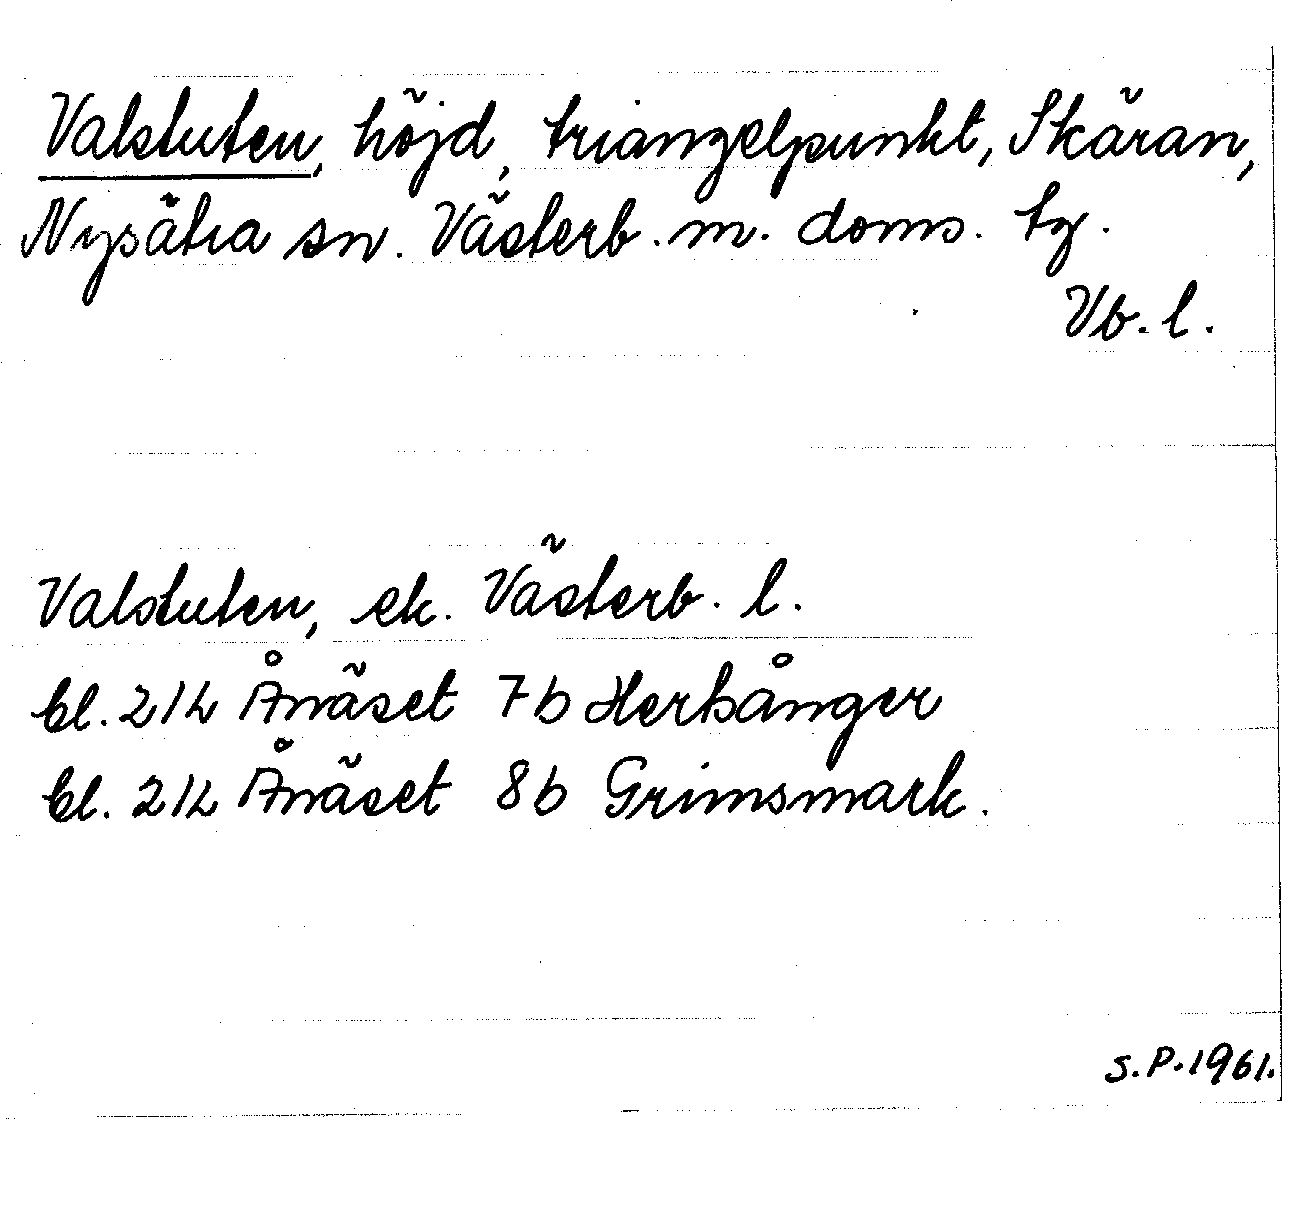 Valstuten, höjd, triangelpunkt, Skäran,
Nysätra sn. Västerb. m. doms. tg.
Vb. l.
Valstuten, ek. Västerb. l.
bl. 21L Ånäset 7b Herrånger
bl. 21L Ånäset 8b Grimsmark.
S.P. 1961.